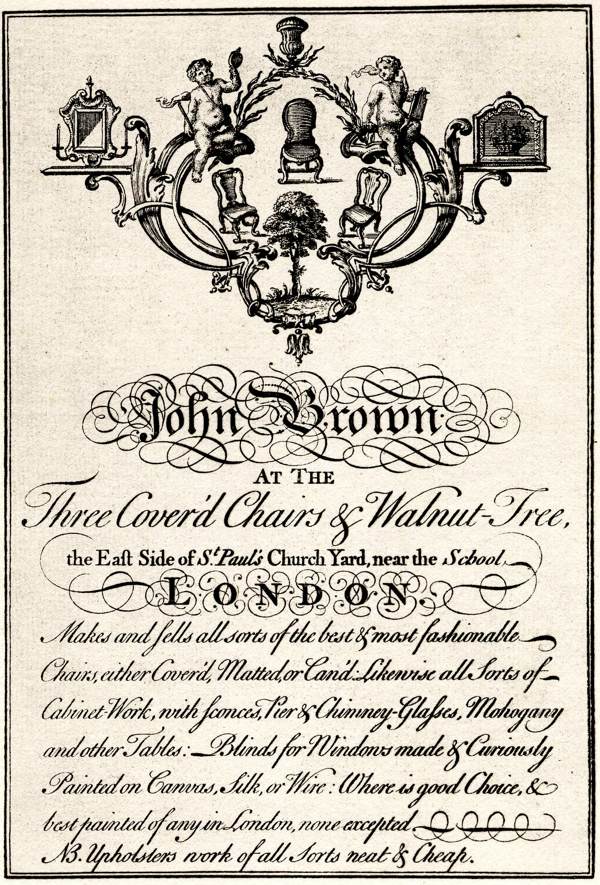 John Brown
AT THE
Three Cover'd Chairs & Walnut-Tree,
the East Side of St. Paul's Church Yard, near the School,
LONDON.
Makes and sells all sorts of the best & most fashionable
Chairs, either Cover'd, Matted, or Can'd: Likewise all Sorts of
Cabinet-Work, with sconces, Pier & Chimney-Glasses, Mohogany
and other Tables: Blinds for Windows made & Curiously
Painted on Canvas, Silk, or Wire: Where is good Choice, &
best painted of any in London, none excepted
NB. Upholsters work of all Sorts neat & Cheap.